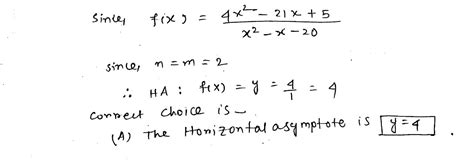 Since, f(x) = \frac{4x^2 - 21x + 5}{x^2 - x - 20}
since, n = m = 2
∴ HA : f(x) = y = \frac{4}{1} = 4
Correct choice is –
(A) The Horizontal asymptote is y = 4 .